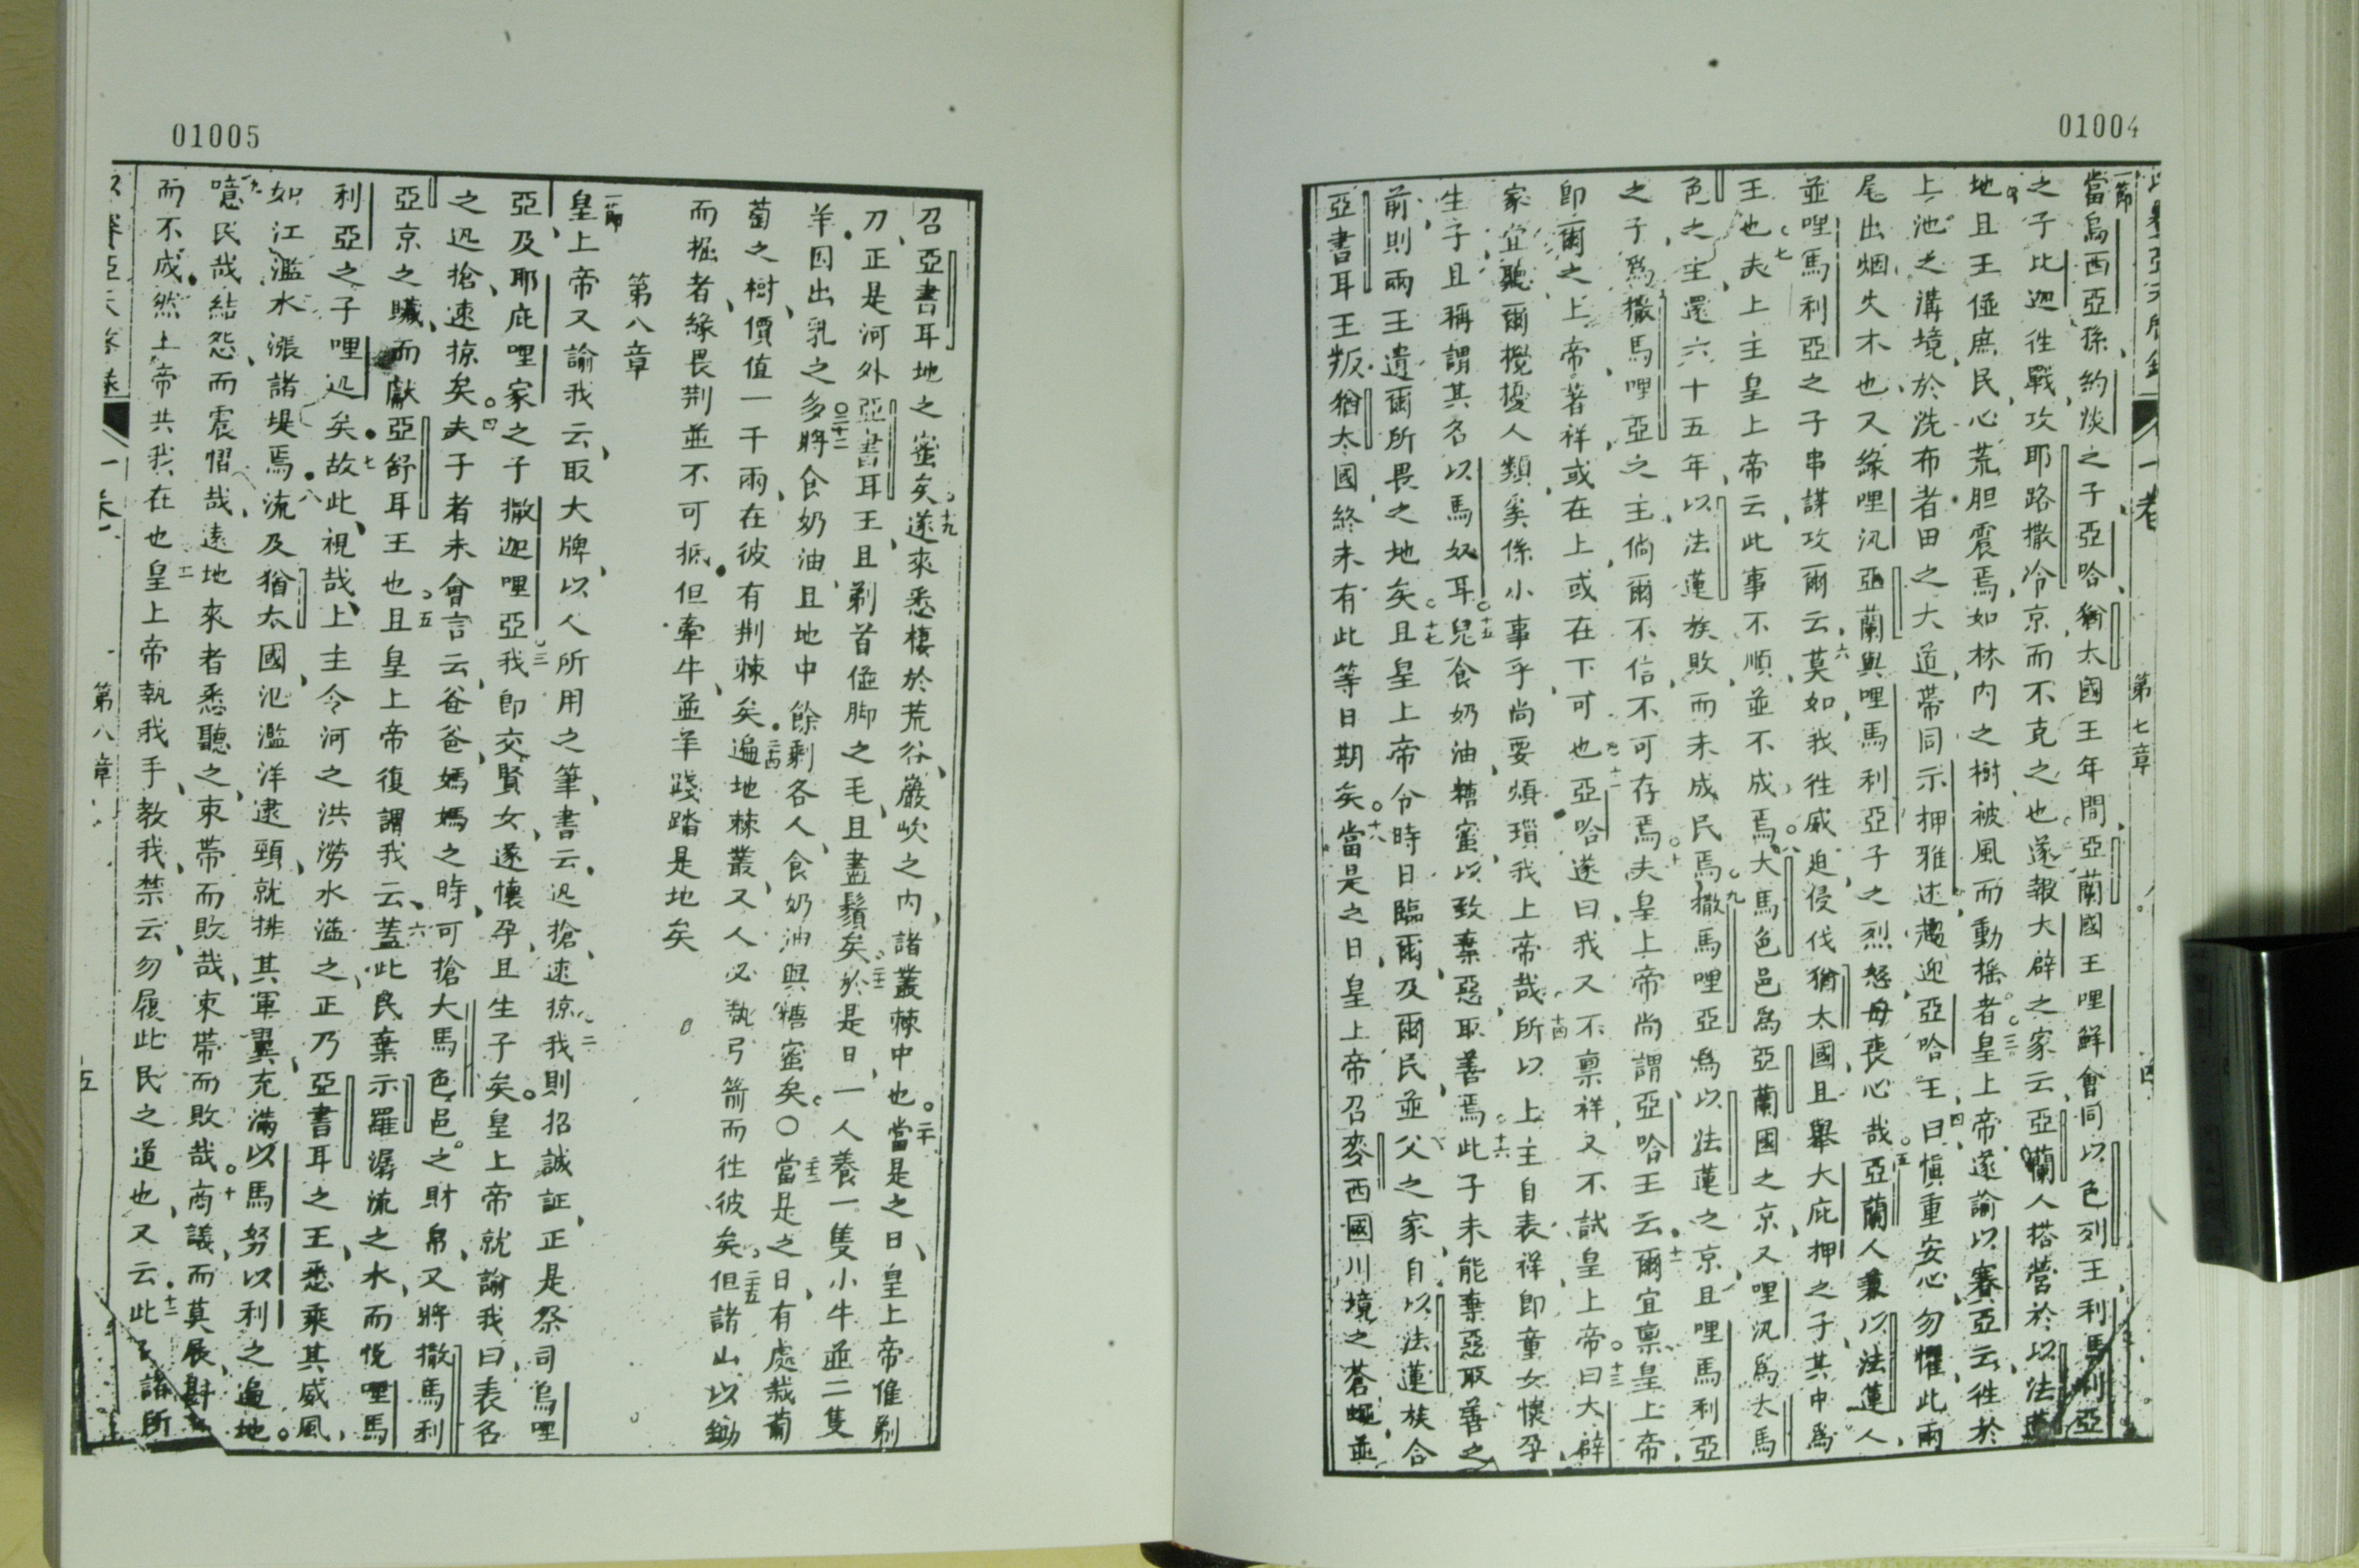 01004
第七章
一節
當烏西亞孫約淡之子亞哈猶太國王年間亞蘭國王哩鮮會同以色列王利馬利亞
之子比迦徃戰攻耶路撒冷京而不克之也遂報大辟之家云亞蘭人搭營於以法蓮
地且王俹庶民心荒胆震焉如林內之樹被風而動搖者皇上帝遂諭以賽亞云徃於
上池之溝境於洗布者田之大道帶同示押雅述趨迎亞哈王曰愼重安心勿懼此兩
尾出烟火木也又緣哩汛亞蘭與哩馬利亞子之烈怒毋喪心哉亞蘭人兼以法蓮人
並哩馬利亞之子串謀攻爾云莫如我徃威迫侵伐猶太國且舉大庇押之子其中爲
王也夫上主皇上帝云此事不順並不成焉大馬色邑爲亞蘭國之京又哩汛爲大馬
色之主還六十五年以法蓮族敗而未成民焉撒馬哩亞爲以法蓮之京且哩馬利亞
之子爲撒馬哩亞之主倘爾不信不可存焉夫皇上帝尚謂亞哈王云爾宜禀皇上帝
卽爾之上帝著祥或在上或在下可也亞哈遂曰我又不禀祥又不試皇上帝曰大辟
家宜聽爾攪擾人類奚係小事乎尚要煩瑣我上帝哉所以上主自表祥卽童女懷孕
生子且稱謂其名以馬奴耳兒食奶油糖蜜以致棄惡取善焉此子未能棄惡取善之
前則兩王遺爾所畏之地矣且皇上帝令時日臨爾及爾民並父之家自以法蓮族合
亞書耳王叛猶太國終未有此等日期矣當是之日皇上帝召麥西國川境之蒼蠅並
01005
召亞書耳地之蜜矣遂來悉棲於荒谷巖㘭之內諸叢棘中也當是之日皇上帝僱剃
刀正是河外亞書耳王且剃首俹脚之毛且盡鬚矣於是日一人養一隻小牛並二隻
羊因出乳之多將食奶油且地中餘剩各人食奶油與糖蜜矣〇當是之日有處栽葡
萄之樹價值一千兩在彼有荆棘矣遍地棘叢又人必執弓箭而徃彼矣但諸山以鋤
而掘者緣畏荆並不可抵但牽牛並羊踐踏是地矣
第八章
一節
皇上帝又諭我云取大牌以人所用之筆書云迅搶速掠我則招誠証正是祭司烏哩
亞及耶庇哩家之子撒迦哩亞我卽交賢女遂懷孕且生子矣皇上帝就諭我曰表名
之迅搶速掠矣夫子者未會言云爸爸媽媽之時可搶大馬色邑之財帛又將撒馬利
亞京之贓而獻亞舒耳王也且皇上帝復謂我云蓋此民棄示羅潺流之水而悅哩馬
利亞之子哩迅矣故此視哉上主令河之洪澇水滥之正乃亞書耳之王悉乘其威風
如江濫水漲諸堤焉流及猶太國氾濫洋逮頸就排其軍翼充滿以馬努以利之遍地
噫民哉結怨而震慴哉遠地來者悉聽之束帶而敗哉束帶而敗哉商議而莫展
而不成然上帝共我在也皇上帝執我手教我禁云勿履此民之道也又云此 諸所
第八章
五